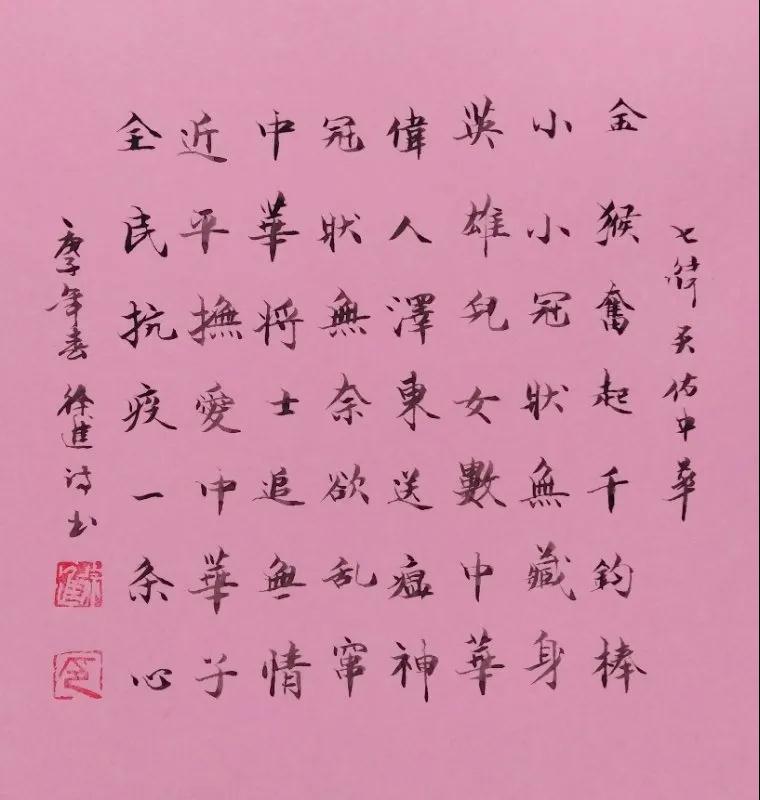 七律 天佑中華
金猴奮起千鈞棒
小小冠狀無藏身
英雄兒女數中華
偉人澤東送瘟神
冠狀無奈欲乱窜
中華将士追無情
近平撫愛中華子
全民抗疫一条心
庚子年春 徐進 诗书